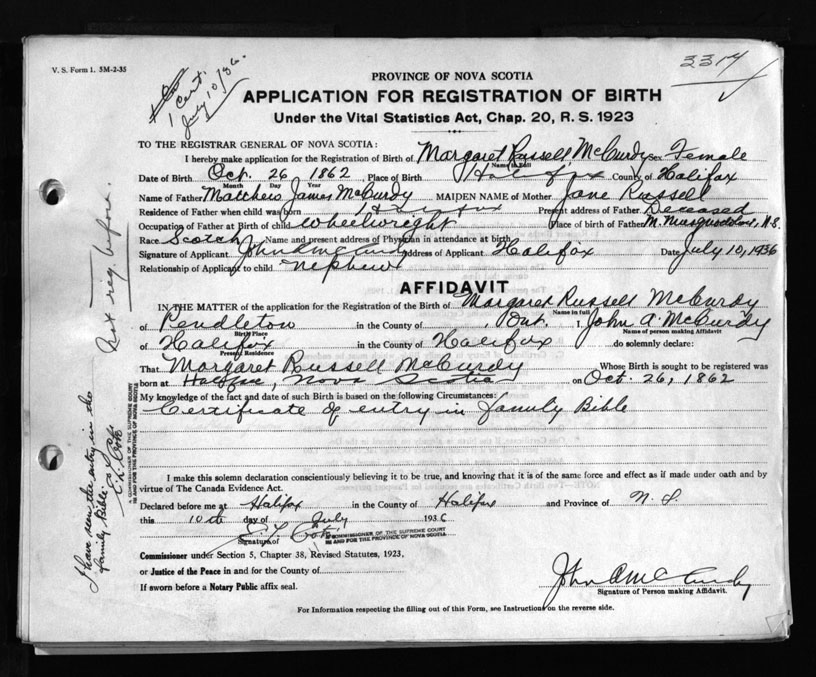 V. S. Form 1. 5M-2-35
1 Cert.
July 10/36.
3314
PROVINCE OF NOVA SCOTIA
APPLICATION FOR REGISTRATION OF BIRTH
Under the Vital Statistics Act, Chap. 20, R. S. 1923
TO THE REGISTRAR GENERAL OF NOVA SCOTIA:
I hereby make application for the Registration of Birth of Margaret Russell McCurdy Sex Female
Name in Full
Date of Birth Oct. 26 1862, Place of Birth Halifax County of Halifax
Month Day Year
Name of Father Matthew James McCurdy MAIDEN NAME of Mother Jane Russell
Residence of Father when child was born Halifax Present address of Father Deceased
Occupation of Father at Birth of child Wheelwright Place of birth of Father M. Musquodoboit, N.S.
Race Scotch Name and present address of Physician in attendance at birth
Signature of Applicant John A McCurdy Address of Applicant Halifax Date July 10, 1936
Relationship of Applicant to child nephew
AFFIDAVIT
IN THE MATTER of the application for the Registration of the Birth of Margaret Russell McCurdy
Name in full
of Pendleton in the County of , Ont. I, John A. McCurdy
Birth Place Name of person making Affidavit
of Halifax in the County of Halifax do solemnly declare:
Present Residence
That Margaret Russell McCurdy Whose Birth is sought to be registered was
born at Halifax, Nova Scotia on Oct. 26, 1862
My knowledge of the fact and date of such Birth is based on the following Circumstances:
Certificate of entry in Family Bible
I make this solemn declaration conscientiously believing it to be true, and knowing that it is of the same force and effect as if made under oath and by
virtue of The Canada Evidence Act.
Declared before me at Halifax in the County of Halifax and Province of N. S.
this 10th day of July 1936
Signature of
A COMMISSIONER OF THE SUPREME COURT
IN AND FOR THE PROVINCE OF NOVA SCOTIA
Commissioner under Section 5, Chapter 38, Revised Statutes, 1923,
or Justice of the Peace in and for the County of
If sworn before a Notary Public affix seal.
John A McCurdy
Signature of Person making Affidavit.
For Information respecting the filling out of this Form, see Instructions on the reverse side.
Not reg. before.
I have seen the entry in the
family Bible
A COMMISSIONER OF THE SUPREME COURT
IN AND FOR THE PROVINCE OF NOVA SCOTIA